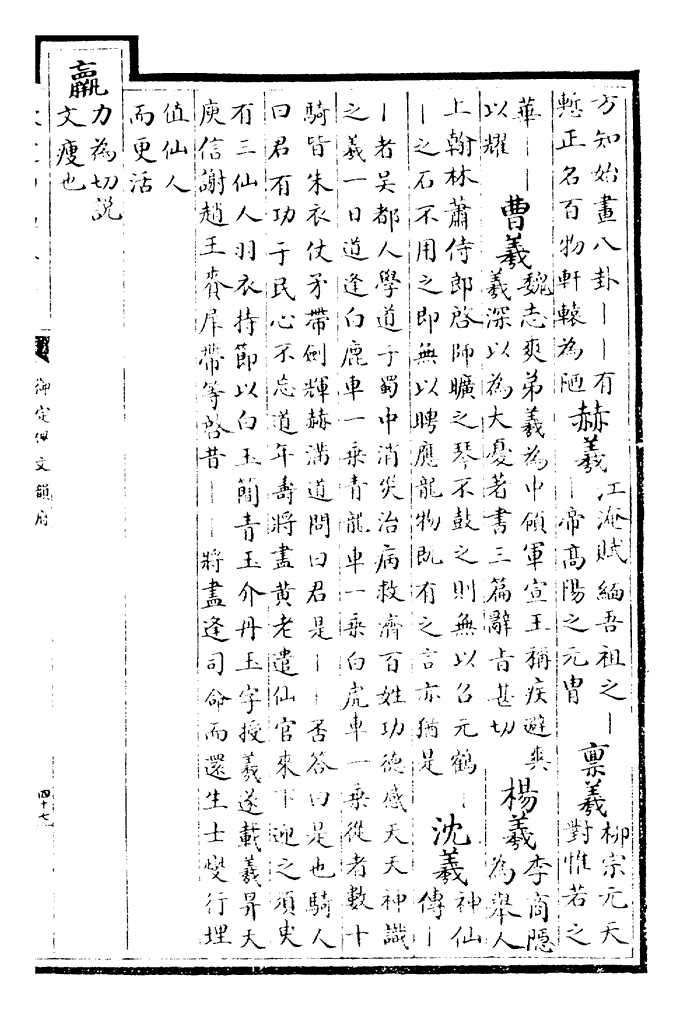 方知始畫八卦｜｜有
慙正名百物軒轅為陋
赫羲
江淹賦緬吾祖之｜
｜帝高陽之元胄
禀羲
柳宗元天
對惟若之
華｜｜
以耀
曹羲
魏志爽弟羲為中領軍宣王稱疾避爽
羲深以為大憂著書三篇辭旨甚切
楊羲
李商隱
為舉人
上翰林蕭侍郎啓師曠之琴不鼓之則無以召元鶴｜
｜之石不用之即無以聘應龍物既有之言亦猶是
沈羲
神仙
傳｜
｜者吳都人學道于蜀中消災治病救濟百姓功德感天天神識
之羲一日道逢白鹿車一乗青龍車一乗白虎車一乗從者數十
騎皆朱衣仗矛帶劍輝赫滿道問曰君是｜｜否答曰是也騎人
曰君有功于民心不忘道年壽將盡黃老遣仙官來下迎之須臾
有三仙人羽衣持節以白玉簡青玉介丹玉字授羲遂載羲昇天
庾信謝趙王賚犀帶等啓昔｜｜將盡逢司命而還生士燮行埋
值仙人
而更活
羸
力為切説
文瘦也
御定佩文韻府
四十七